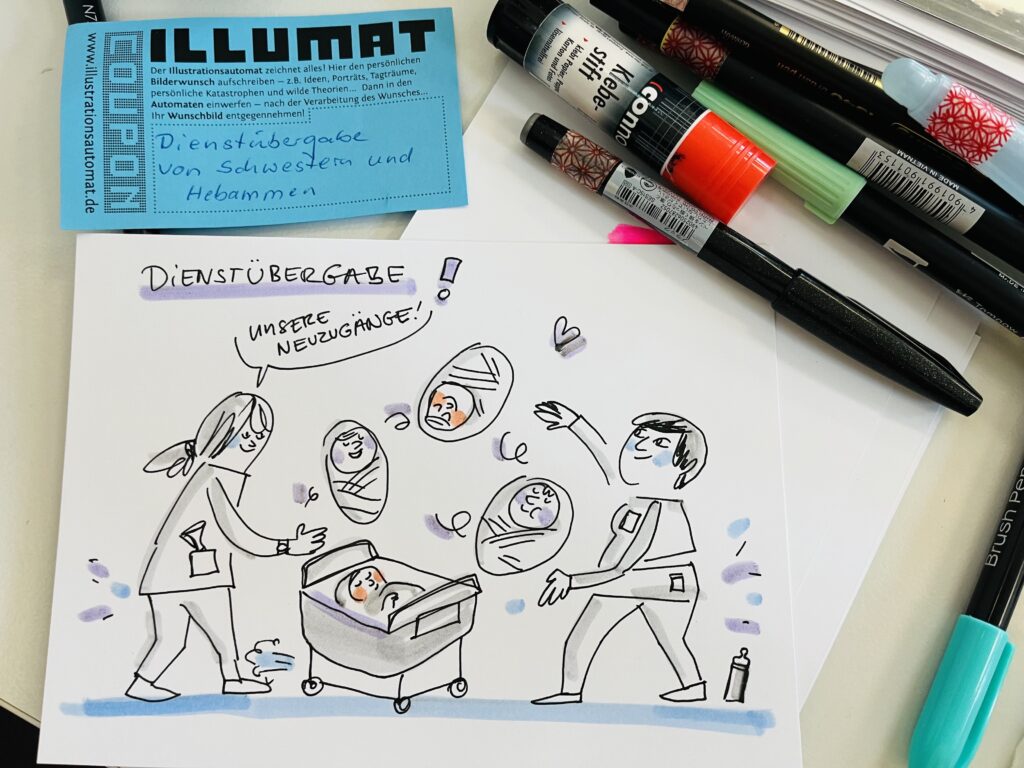 ILLUMAT
COUPON
www.illustrationsautomat.de
Der Illustrationsautomat zeichnet alles! Hier den persönlichen
Bilderwunsch aufschreiben – z.B. Ideen, Porträts, Tagträume,
persönliche Katastrophen und wilde Theorien... Dann in den
Automaten einwerfen – nach der Verarbeitung des Wunsches...
Ihr Wunschbild entgegennehmen!
Dienstübergabe
von Schwestern und
Hebammen
DIENSTÜBERGABE!
UNSERE
NEUZUGÄNGE!
Klebe-
stift
klebt Papier, Pappe,
Karton und Fotos
lösemittelfrei
conno
MADE IN VIETNAM
4901991901153
Brush Pen
N7